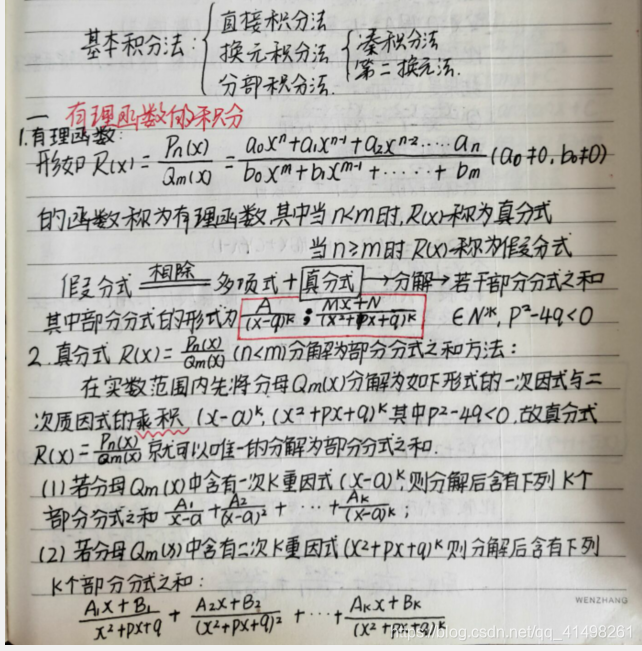 基本积分法: { 直接积分法
换元积分法 { 凑积分法
第二换元法.
分部积分法.
一 有理函数的积分
1.有理函数:
形如 R(x) = Pn(x)/Qm(x) = (a₀xⁿ+a₁xⁿ⁻¹+a₂xⁿ⁻².....aₙ)/(b₀xᵐ+b₁xᵐ⁻¹+......+bₘ) (a₀≠0, b₀≠0)
的函数称为有理函数,其中当n<m时,R(x)称为真分式
当n≥m时 R(x)称为假分式
假分式 相除 多项式 + 真分式 → 分解 → 若干部分分式之和
其中部分分式的形式为 A/(x-a)ᵏ ; (Mx+N)/(x²+px+q)ᵏ ∈N*, P²-4q<0
2. 真分式 R(x) = Pn(x)/Qm(x) (n<m)分解为部分分式之和方法:
在实数范围内先将分母Qm(x)分解为如下形式的一次因式与二
次质因式的乘积 (x-a)ᵏ, (x²+px+q)ᵏ 其中p²-4q<0, 故真分式
R(x) = Pn(x)/Qm(x) 就可以唯一的分解为部分分式之和.
(1) 若分母Qm(x)中含有一次K重因式(x-a)ᵏ,则分解后含有下列 K个
部分分式之和 A₁/(x-a) + A₂/(x-a)² + ... + Aₖ/(x-a)ᵏ ;
(2) 若分母Qm(x)中含有二次K重因式(x²+px+q)ᵏ则分解后含有下列
K个部分分式之和:
(A₁x+B₁)/(x²+px+q) + (A₂x+B₂)/(x²+px+q)² + ... + (Aₖx+Bₖ)/(x²+px+q)ᵏ
WENZHANG
https://blog.csdn.net/qq_41498261